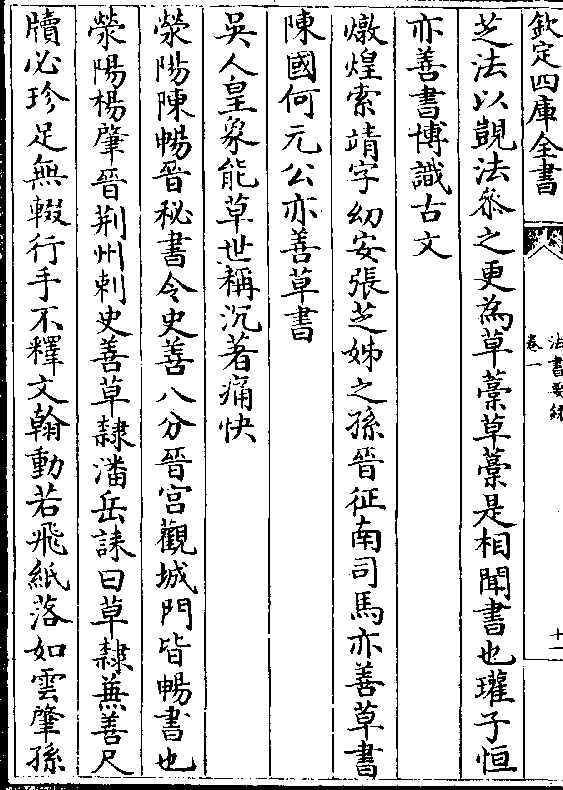 欽定四庫全書
法書要録
卷一
十一
芝法以覬法叅之更為草藁草藁是相聞書也瓘子恒
亦善書博識古文
燉煌索靖字幼安張芝姊之孫晉征南司馬亦善草書
陳國何元公亦善草書
吳人皇象能草世稱沉著痛快
滎陽陳暢晉秘書令史善八分晉宫觀城門皆暢書也
滎陽楊肇晉荆州刺史善草隸潘岳誄曰草隸兼善尺
牘必珍足無輟行手不釋文翰動若飛紙落如雲肇孫